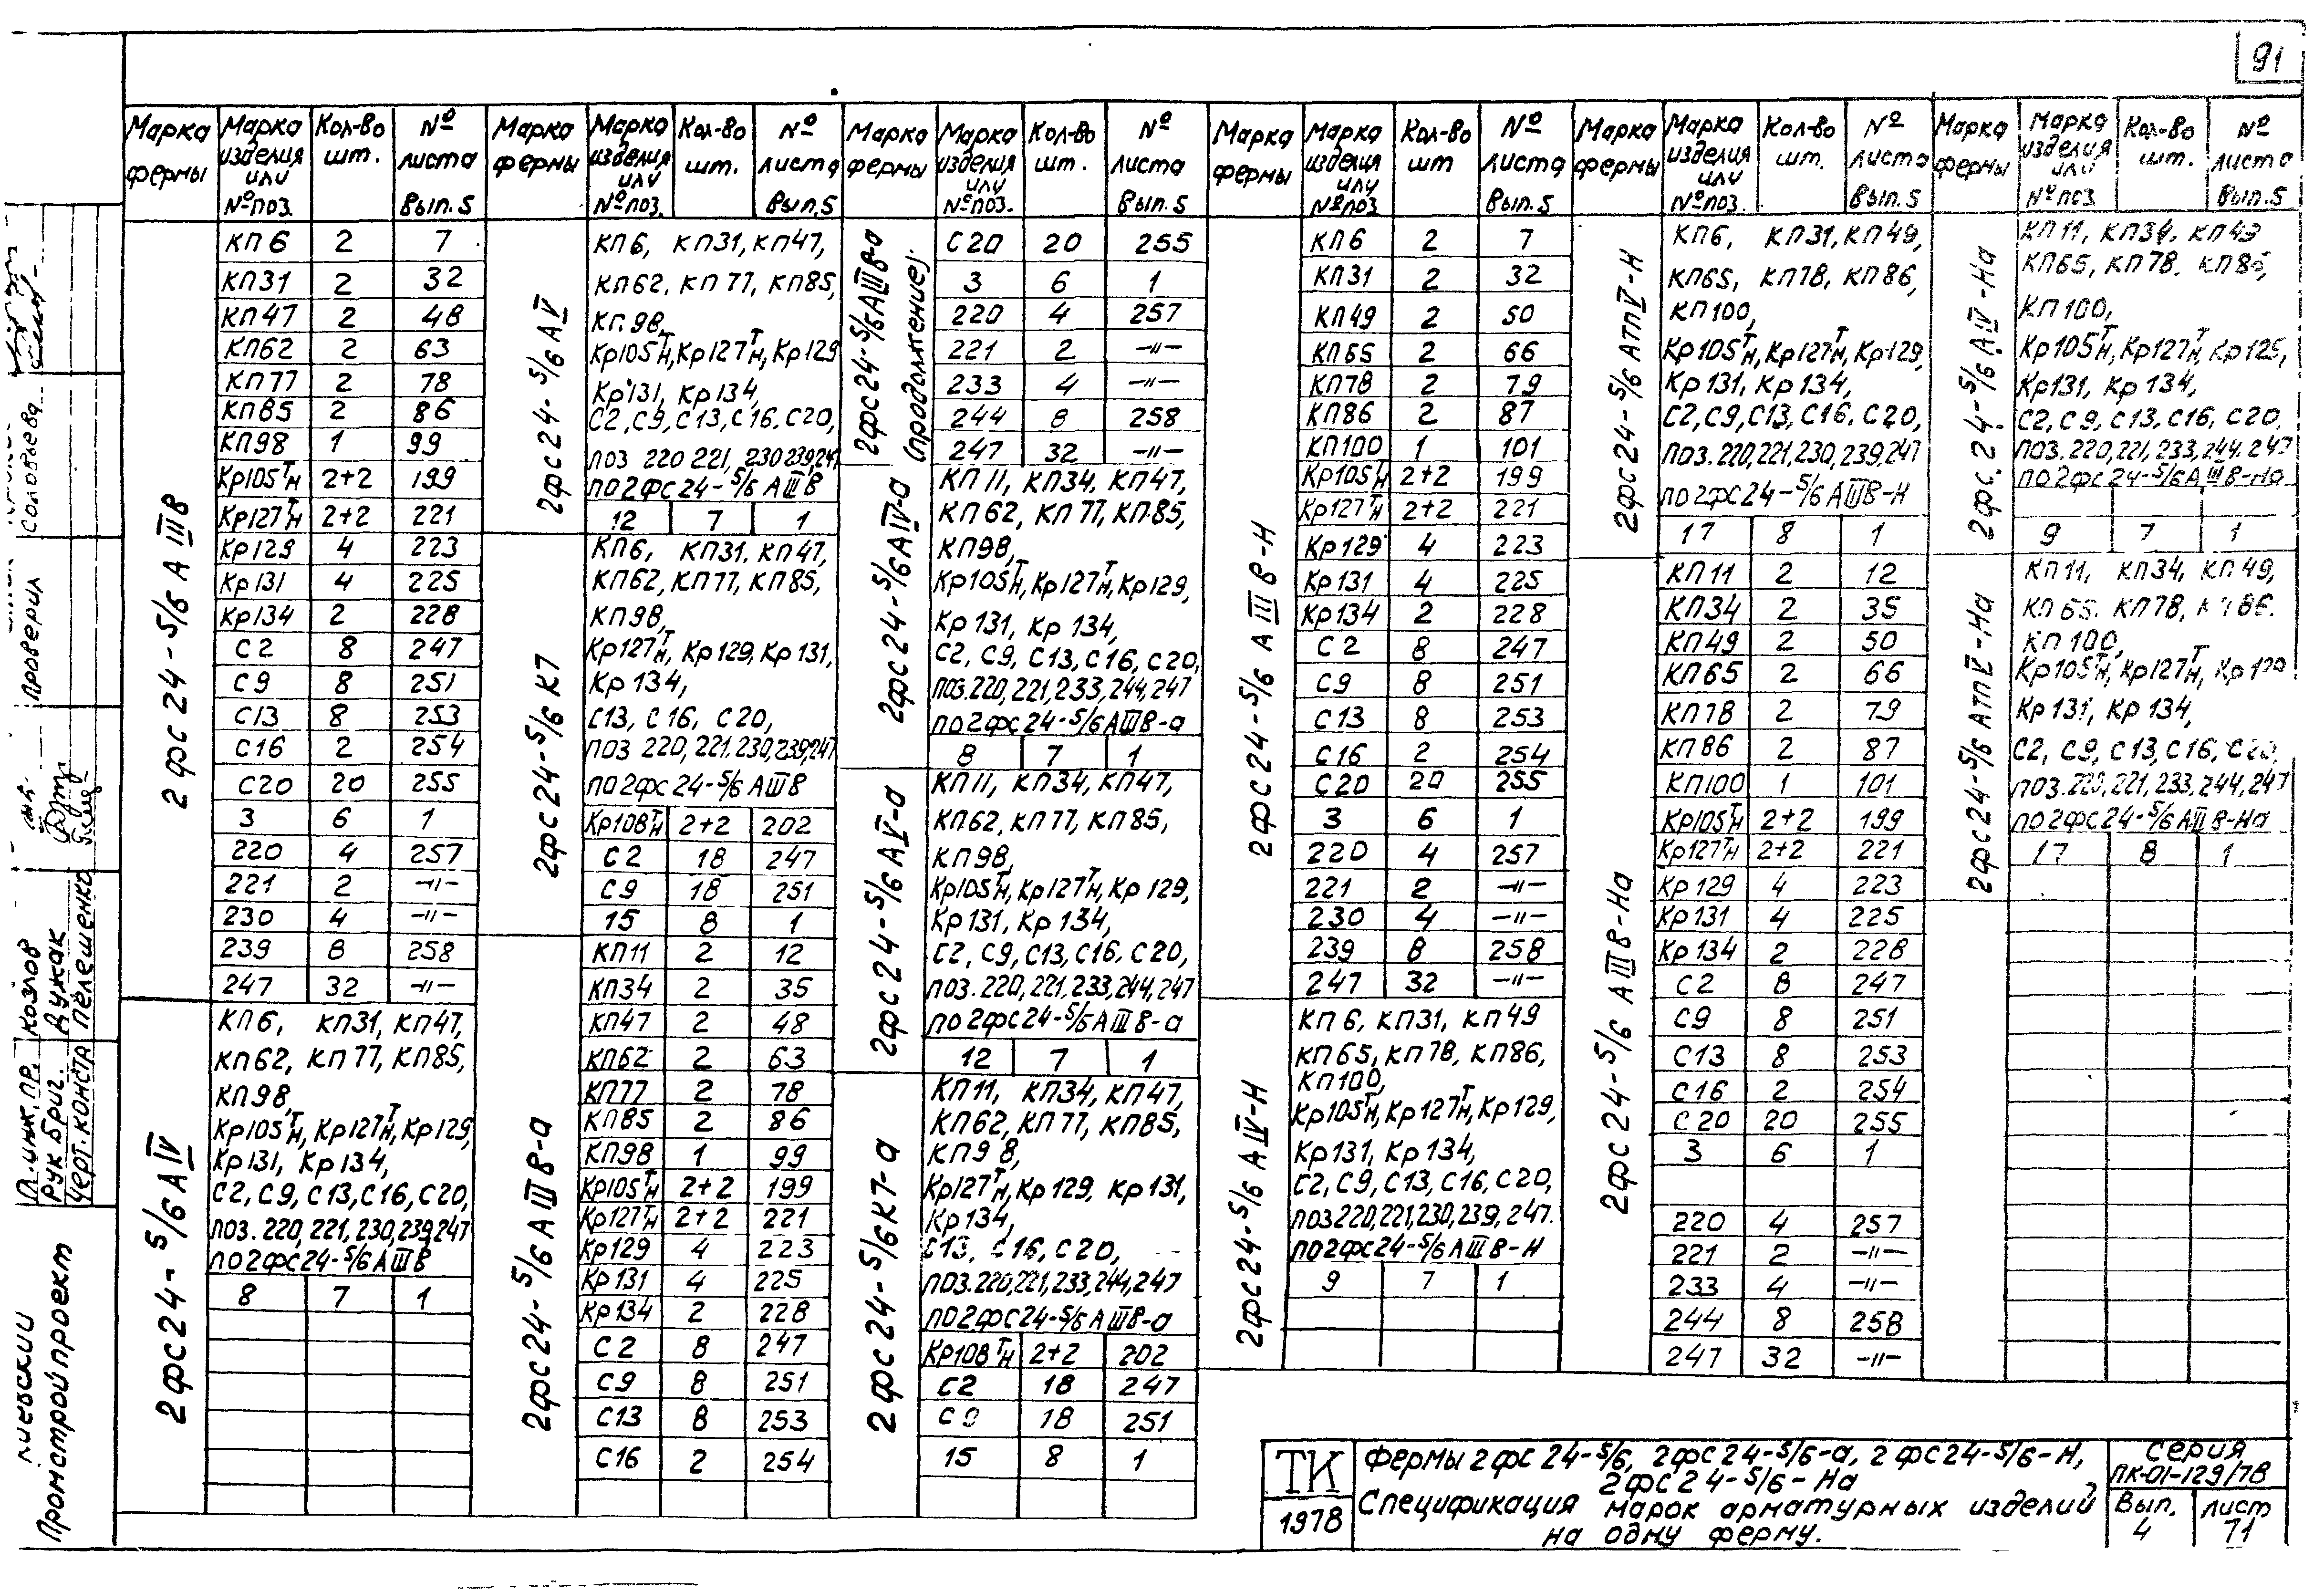 91
Марка фермы
Марка изделия или №поз.
Кол-во шт.
№ листа Вып.5
2фс24-5/6АIIIв
КП6 2 7
КП31 2 32
КП47 2 48
КП62 2 63
КП77 2 78
КП85 2 86
КП98 1 99
Кр105Тн 2+2 199
Кр127Тн 2+2 221
Кр129 4 223
Кр131 4 225
Кр134 2 228
С2 8 247
С9 8 251
С13 8 253
С16 2 254
С20 20 255
3 6 1
220 4 257
221 2 -"-
230 4 -"-
239 8 258
247 32 -"-
2фс24-5/6АIV
КП6, КП31, КП47,
КП62, КП77, КП85,
КП98,
Кр105Тн, Кр127Тн, Кр129,
Кр131, Кр134,
С2, С9, С13, С16, С20,
поз. 220, 221, 230, 239, 247
по 2фс24-5/6АIIIв
8 7 1
Марка фермы
Марка изделия или №поз.
Кол-во шт.
№ листа Вып.5
2фс24-5/6АV
КП6, КП31, КП47,
КП62, КП77, КП85,
КП98,
Кр105Тн, Кр127Тн, Кр129
Кр131, Кр134,
С2, С9, С13, С16. С20,
поз 220 221, 230 239, 247
по 2фс24-5/6АIIIв
12 7 1
2фс24-5/6К7
КП6, КП31. КП47,
КП62, КП77, КП85,
КП98,
Кр127Тн, Кр129, Кр131,
Кр134,
С13, С16, С20,
поз 220, 221, 230, 239, 247
по 2фс24-5/6АIIIв
Кр108Тн 2+2 202
С2 18 247
С9 18 251
15 8 1
2фс24-5/6АIIIв-а
КП11 2 12
КП34 2 35
КП47 2 48
КП62 2 63
КП77 2 78
КП85 2 86
КП98 1 99
Кр105Тн 2+2 199
Кр127Тн 2+2 221
Кр129 4 223
Кр131 4 225
Кр134 2 228
С2 8 247
С9 8 251
С13 8 253
С16 2 254
Марка фермы
Марка изделия или №поз.
Кол-во шт.
№ листа Вып.5
2фс24-5/6АIIIв-а (продолжение).
С20 20 255
3 6 1
220 4 257
221 2 -"-
233 4 -"-
244 8 258
247 32 -"-
2фс24-5/6АIV-а
КП11, КП34, КП47,
КП62, КП77, КП85,
КП98,
Кр105Тн, Кр127Тн, Кр129,
Кр131, Кр134,
С2, С9, С13, С16, С20,
поз. 220, 221, 233, 244, 247
по 2фс24-5/6АIIIв-а
8 7 1
2фс24-5/6АV-а
КП11, КП34, КП47,
КП62, КП77, КП85,
КП98,
Кр105Тн, Кр127Тн, Кр129,
Кр131, Кр134,
С2, С9, С13, С16. С20,
поз. 220, 221, 233, 244, 247
по 2фс24-5/6АIIIв-а
12 7 1
2фс24-5/6К7-а
КП11, КП34, КП47,
КП62, КП77, КП85,
КП98,
Кр127Тн, Кр129, Кр131,
Кр134,
С13, С16, С20,
поз. 220, 221, 233, 244, 247
по 2фс24-5/6АIIIв-а
Кр108Тн 2+2 202
С2 18 247
С9 18 251
15 8 1
Марка фермы
Марка изделия или №поз
Кол-во шт
№ листа Вып.5
2фс24-5/6АIIIв-Н
КП6 2 7
КП31 2 32
КП49 2 50
КП65 2 66
КП78 2 79
КП86 2 87
КП100 1 101
Кр105Тн 2+2 199
Кр127Тн 2+2 221
Кр129 4 223
Кр131 4 225
Кр134 2 228
С2 8 247
С9 8 251
С13 8 253
С16 2 254
С20 20 255
3 6 1
220 4 257
221 2 -"-
230 4 -"-
239 8 258
247 32 -"-
2фс24-5/6АIV-Н
КП6, КП31, КП49
КП65, КП78, КП86,
КП100,
Кр105Тн, Кр127Тн, Кр129,
Кр131, Кр134,
С2, С9, С13, С16, С20,
поз 220, 221, 230, 239, 247.
по 2фс24-5/6АIIIв-Н
9 7 1
Марка фермы
Марка изделия или №поз.
Кол-во шт.
№ листа Вып.5
2фс24-5/6АтпV-Н
КП6, КП31, КП49,
КП65, КП78, КП86,
КП100,
Кр105Тн, Кр127Тн, Кр129,
Кр131, Кр134,
С2, С9, С13, С16. С20,
поз. 220, 221, 230, 239, 247
по 2фс24-5/6АIIIв-Н
17 8 1
2фс24-5/6АIIIв-На
КП11 2 12
КП34 2 35
КП49 2 50
КП65 2 66
КП78 2 79
КП86 2 87
КП100 1 101
Кр105Тн 2+2 199
Кр127Тн 2+2 221
Кр129 4 223
Кр131 4 225
Кр134 2 228
С2 8 247
С9 8 251
С13 8 253
С16 2 254
С20 20 255
3 6 1
220 4 257
221 2 -"-
233 4 -"-
244 8 258
247 32 -"-
Марка фермы
Марка изделия или №поз
Кол-во шт.
№ листа Вып.5
2фс.24-5/6.АIV-На
КП11, КП34, КП49
КП65, КП78. КП86,
КП100,
Кр105Тн, Кр127Тн, Кр129,
Кр131, Кр134,
С2, С9, С13, С16, С20,
поз. 220, 221, 233, 244, 247
по 2фс24-5/6АIIIв-На
9 7 1
2фс24-5/6АтпV-На
КП11, КП34, КП49,
КП65. КП78, КП86.
КП100,
Кр105Тн, Кр127Тн, Кр129
Кр131, Кр134,
С2, С9, С13, С16, С20,
поз. 220, 221, 233, 244, 247
по 2фс24-5/6АIIIв-На
17 8 1
ТК
1978
Фермы 2фс24-5/6, 2фс24-5/6-а, 2фс24-5/6-Н,
2фс24-5/6-На
Спецификация марок арматурных изделий
на одну ферму.
Серия
ПК-01-129/78
Вып. 4
Лист 71
Проверил
Соловьева
Гл. инж. пр. Козлов
Рук. бриг. Дужак
Черт. констр Пелешенко
Киевский
Промстройпроект